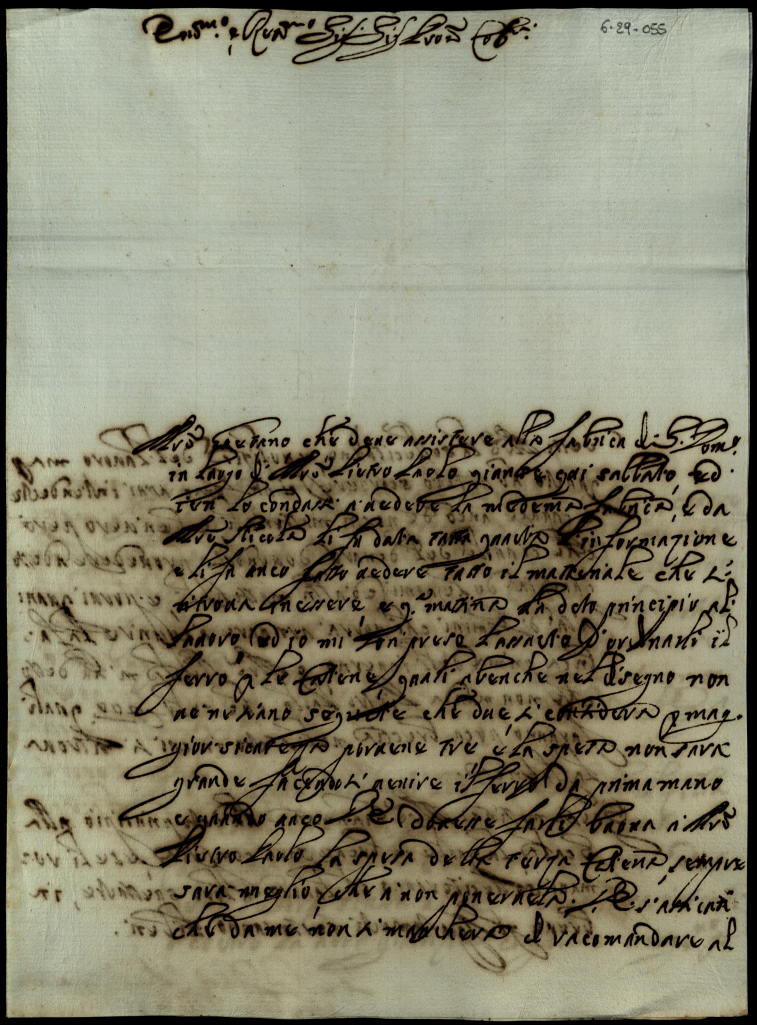 Em.mo e Rev.mo Sig.r Sig.r Pron Col.mo
6-29-055
Mro Gaetano che deve assistere alla fabrica di S. Dom.co
in luogo di Mro Pietro Paolo giunse qui sabbato, ed
ieri lo condussi a vedere la medema fabrica, e da
Mro Nicola li fu data tutta quanta l'informazione
e li fu anco fatto vedere tutto il materiale che si
ritrova in essere e q.a matina ha dato principio al
lavoro, ed io mi son preso l'assunto d'ordinarli il
ferro p le Catene, quali abenche nel disegno non
ne siano segnate che due si considera p mag.
gior sicurezza porvene tre e la spesa non sara
grande facendosi venire il ferro da prima mano
e quando anco dovesse farli buona a Mro
Pietro Paolo la spesa della terza Catena, sempre
sara meglio che a non ponervela. S'assicuri
che da me non si mancherà di racomandare al